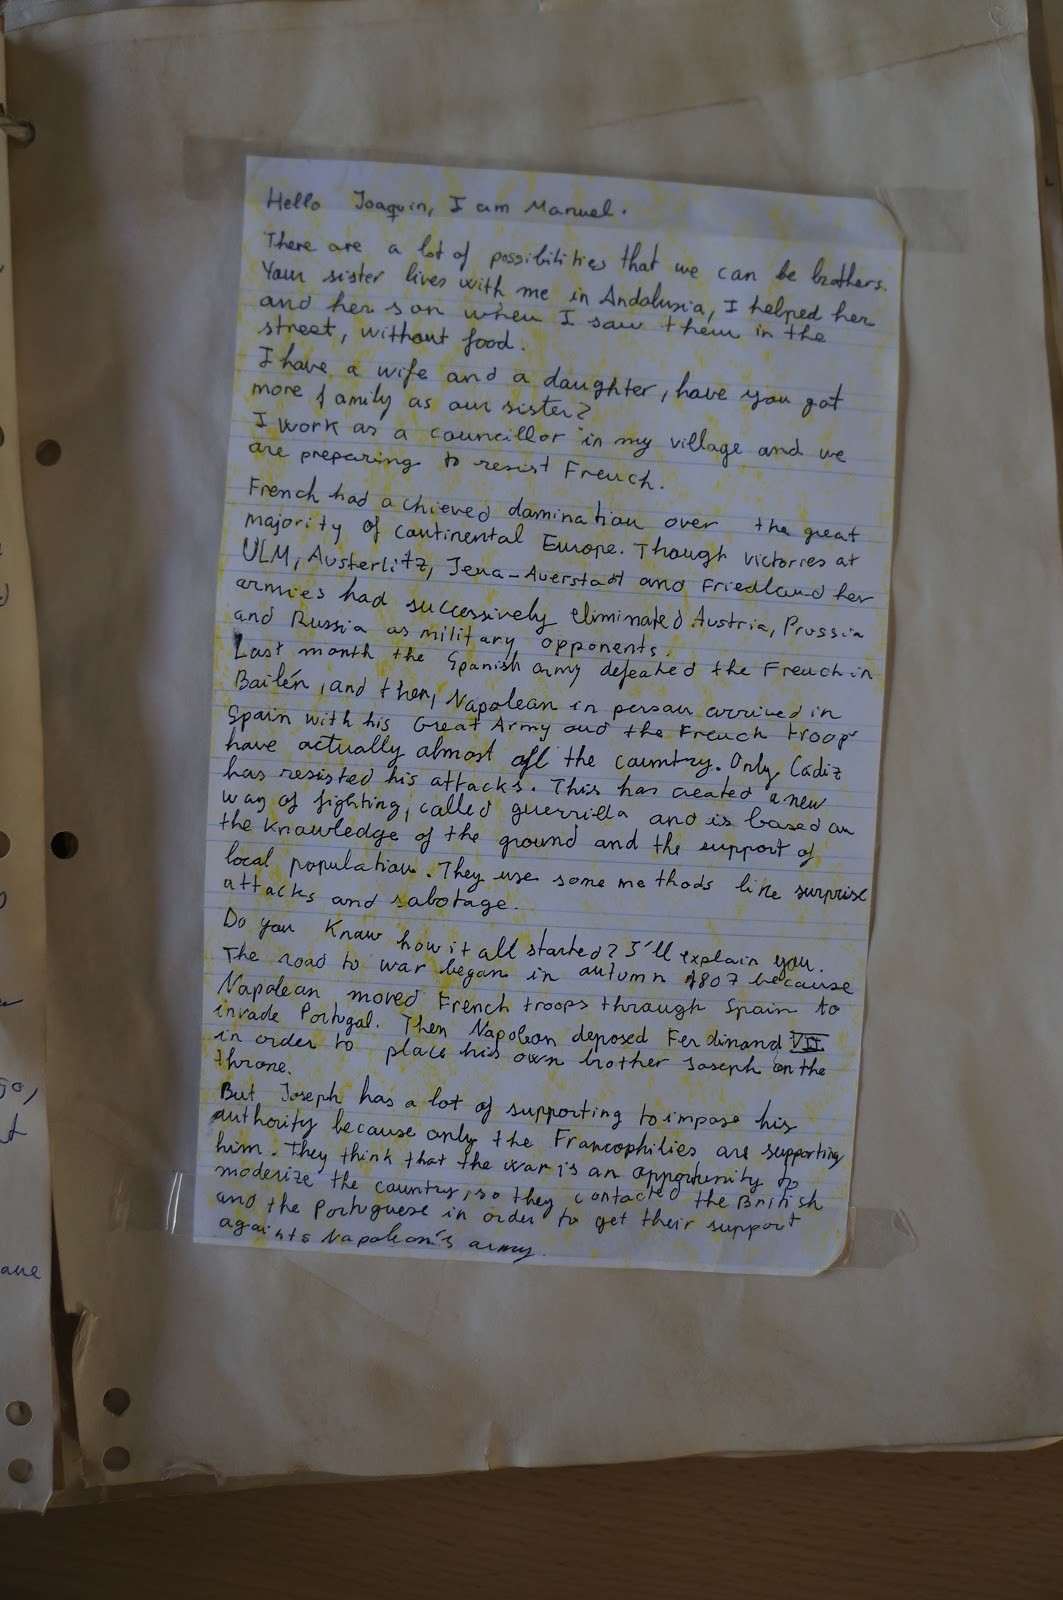 Hello Joaquin, I am Manuel.
There are a lot of possibilities that we can be brothers.
Your sister lives with me in Andalusia, I helped her
and her son when I saw them in the
street, without food.
I have a wife and a daughter, have you got
more family as our sister?
I work as a councillor in my village and we
are preparing to resist French.
French had achieved domination over the great
majority of continental Europe. Though victories at
ULM, Austerlitz, Jena-Auerstadt and Friedland her
armies had successively eliminated Austria, Prussia
and Russia as military opponents.
Last month the Spanish army defeated the French in
Bailén, and then, Napolean in person arrived in
Spain with his Great Army and the French troops
have actually almost all the country. Only Cádiz
has resisted his attacks. This has created a new
way of fighting, called guerrilla and is based on
the knowledge of the ground and the support of
local population. They use some methods like surprise
attacks and sabotage.
Do you know how it all started? I'll explain you.
The road to war began in autumn 1807 because
Napolean moved French troops through Spain to
invade Portugal. Then Napoleon deposed Ferdinand VII
in order to place his own brother Joseph on the
throne.
But Joseph has a lot of supporting to impose his
authority because only the Francophilies are supporting
him. They think that the war is an opportunity to
moderize the country, so they contacted the British
and the Portuguese in order to get their support
againts Napoleon's army.
go,
ane